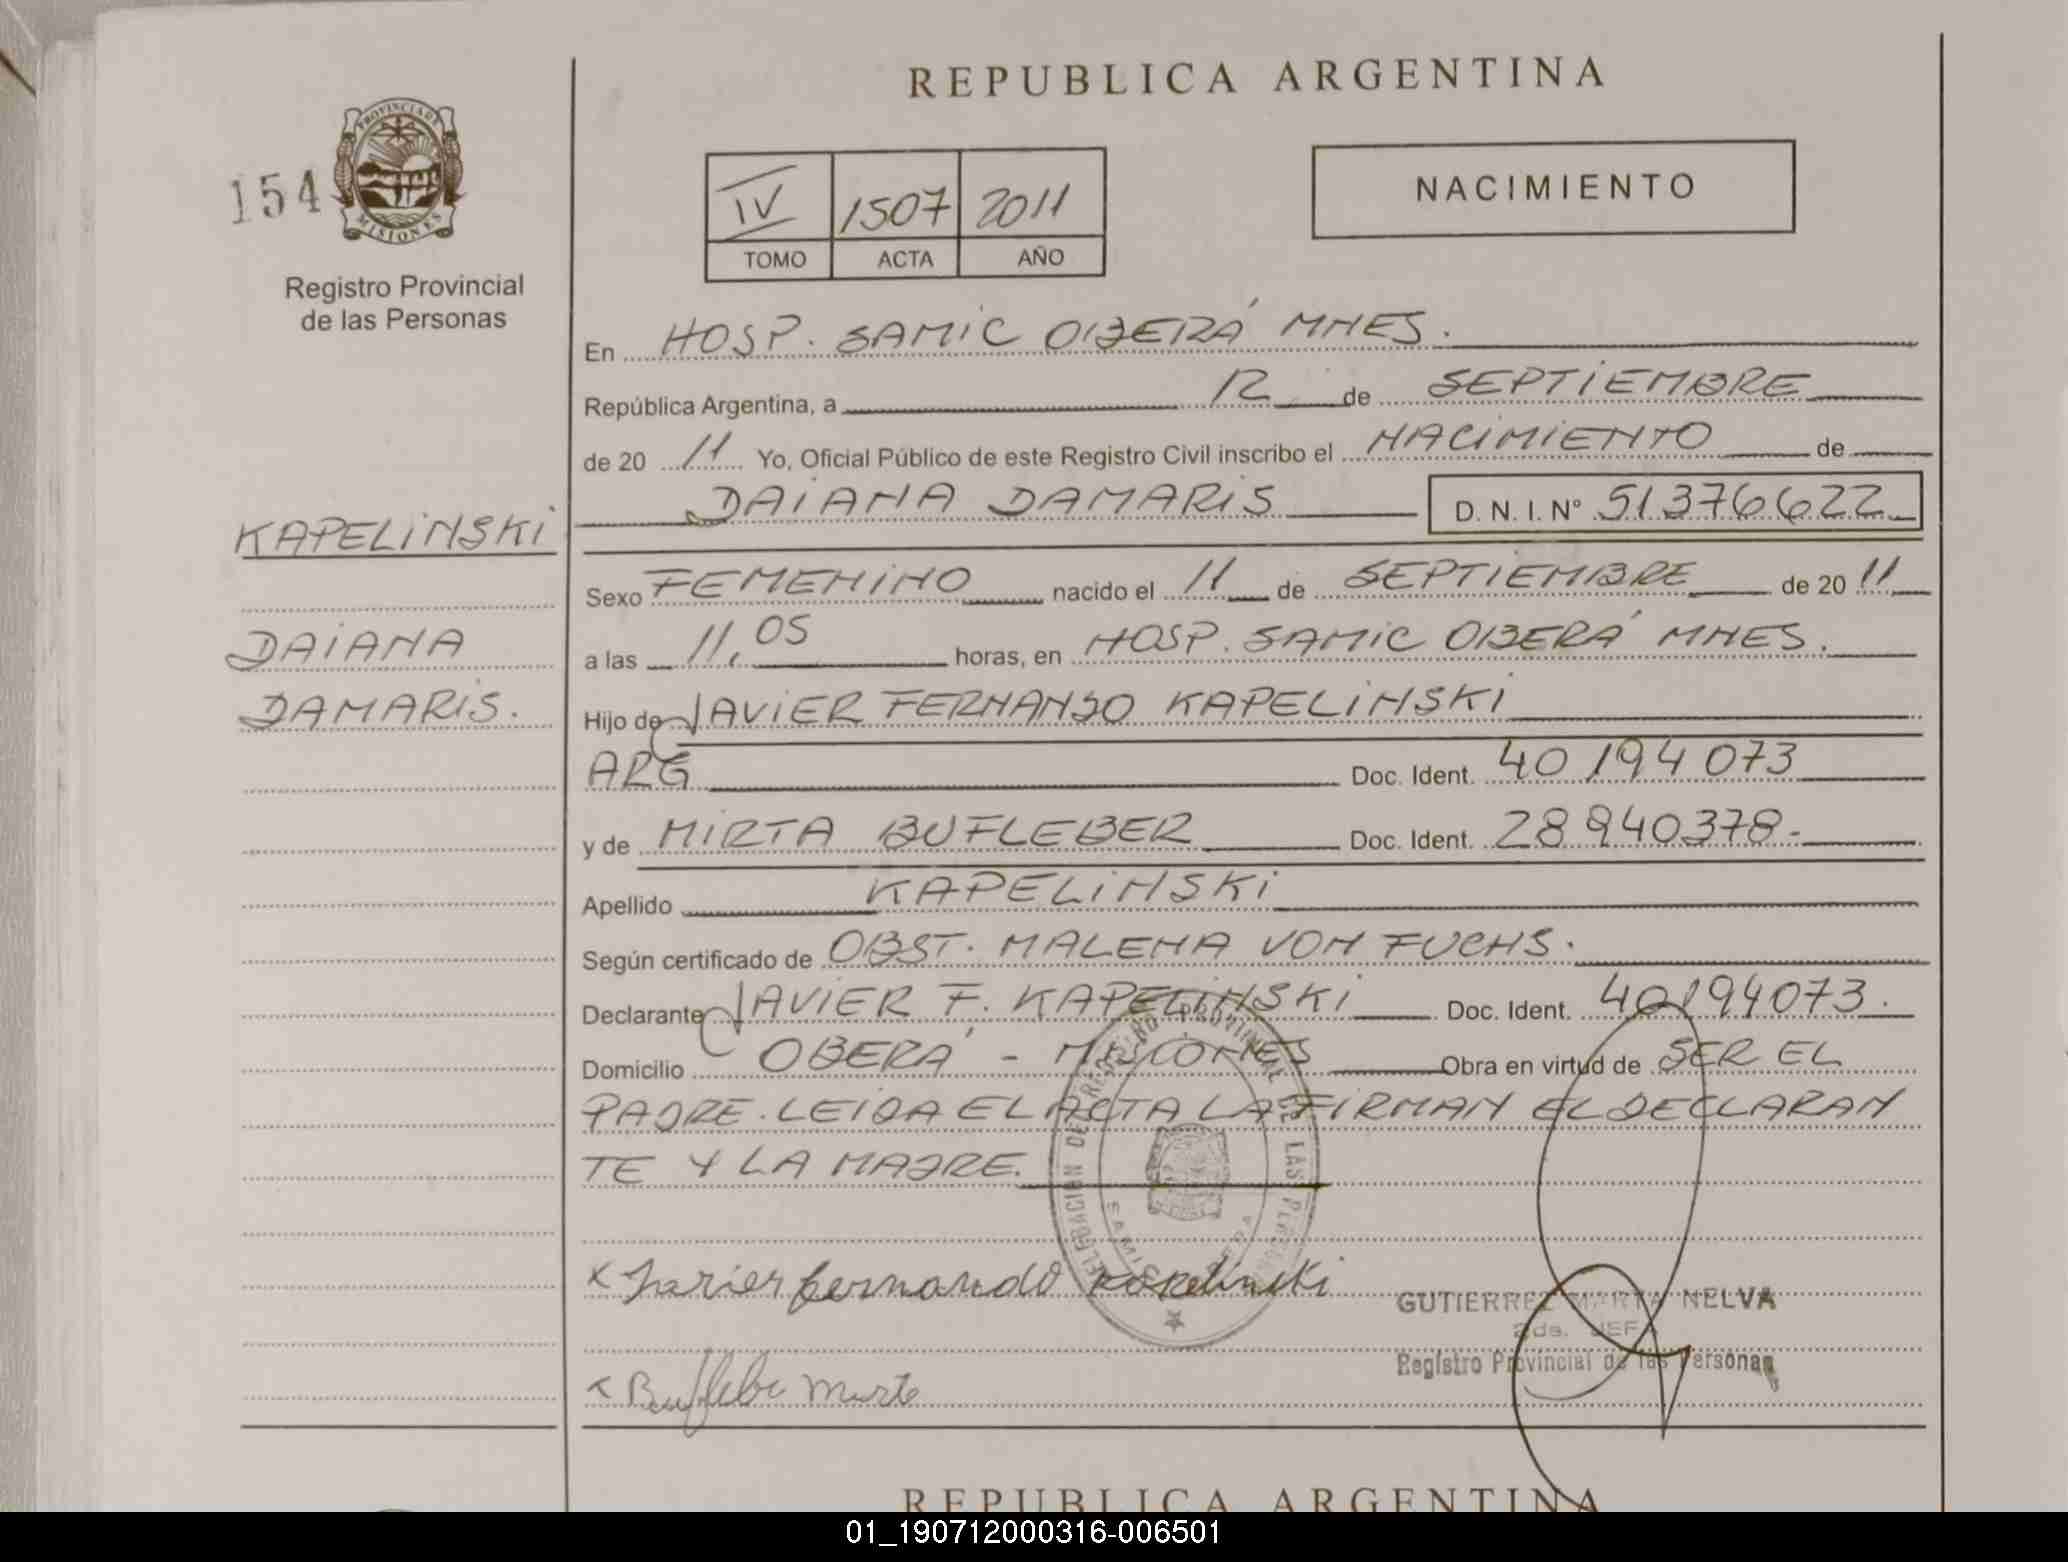 REPUBLICA ARGENTINA
PROVINCIA DE MISIONES
154
Registro Provincial
de las Personas
IV 1507 2011
TOMO ACTA AÑO
NACIMIENTO
En HOSP. SAMIC OBERÁ MNES.
República Argentina, a 12 de SEPTIEMBRE
de 20 11 Yo, Oficial Público de este Registro Civil inscribo el NACIMIENTO de
DAIANA DAMARIS D. N. I. N° 51376622
KAPELINSKI
DAIANA
DAMARIS.
Sexo FEMENINO nacido el 11 de SEPTIEMBRE de 20 11
a las 11,05 horas, en HOSP. SAMIC OBERÁ MNES.
Hijo de JAVIER FERNANDO KAPELINSKI
ARG Doc. Ident. 40194073
y de MIRTA BUFLEBER Doc. Ident. 28940378-
Apellido KAPELINSKI
Según certificado de OBST. MALENA VON FUCHS.
Declarante JAVIER F. KAPELINSKI Doc. Ident. 40194073.
Domicilio OBERÁ - MISIONES Obra en virtud de SER EL
PADRE. LEIDA EL ACTA LA FIRMAN EL DECLARAN
TE Y LA MADRE.
DELEGACION DEL REGISTRO PROVINCIAL DE LAS PERSONAS
SAMIC OBERA
x Javier fernando Kapelinski
GUTIERREZ MARTA NELVA
2da. JEFA
Registro Provincial de las Personas
x Bufleber Mirta
REPUBLICA ARGENTINA
01_190712000316-006501